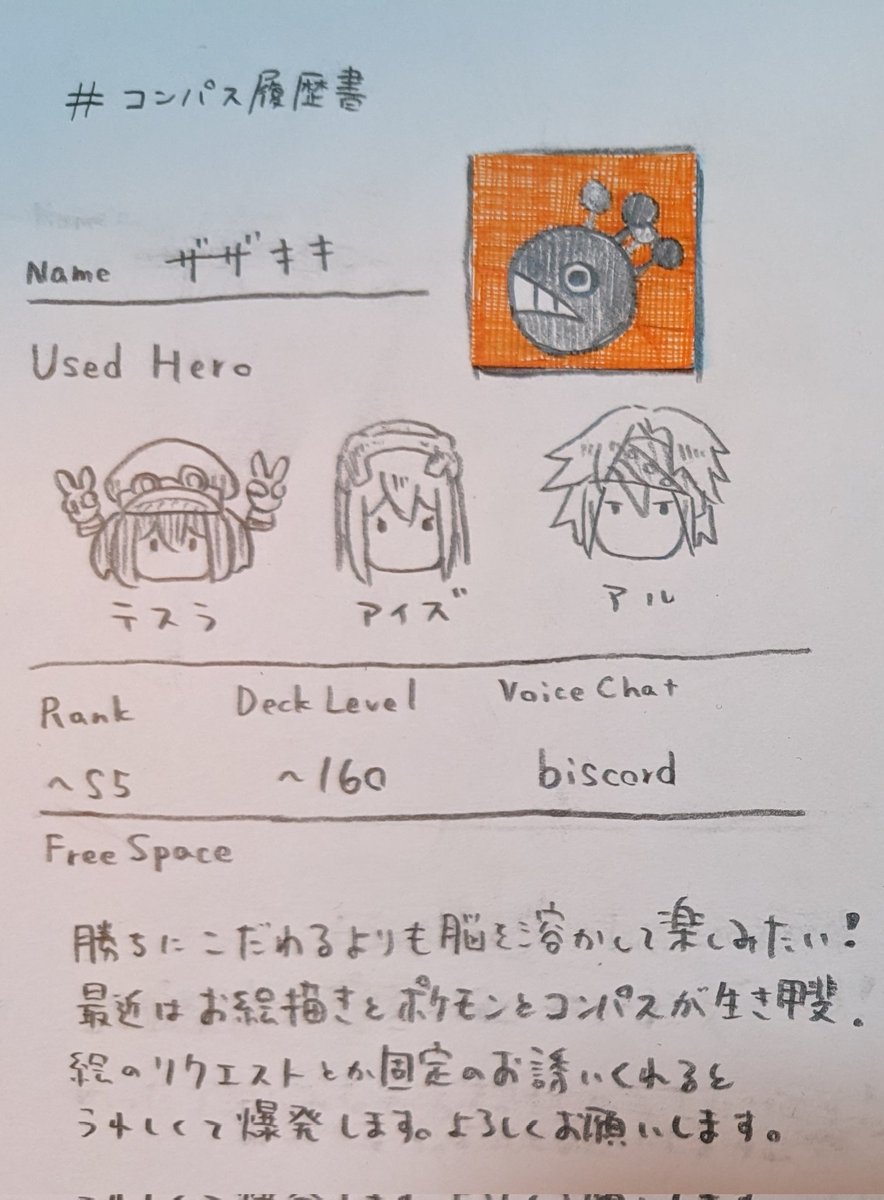 #コンパス履歴書
Name ザザキキ
Used Hero
テスラ アイズ アル
Rank Deck Level Voice Chat
~S5 ~160 biscord
Free Space
勝ちにこだわるよりも脳を溶かして楽しみたい!
最近はお絵描きとポケモンとコンパスが生き甲斐.
絵のリクエストとか固定のお誘いくれると
うれしくて爆発します。よろしくお願いします。